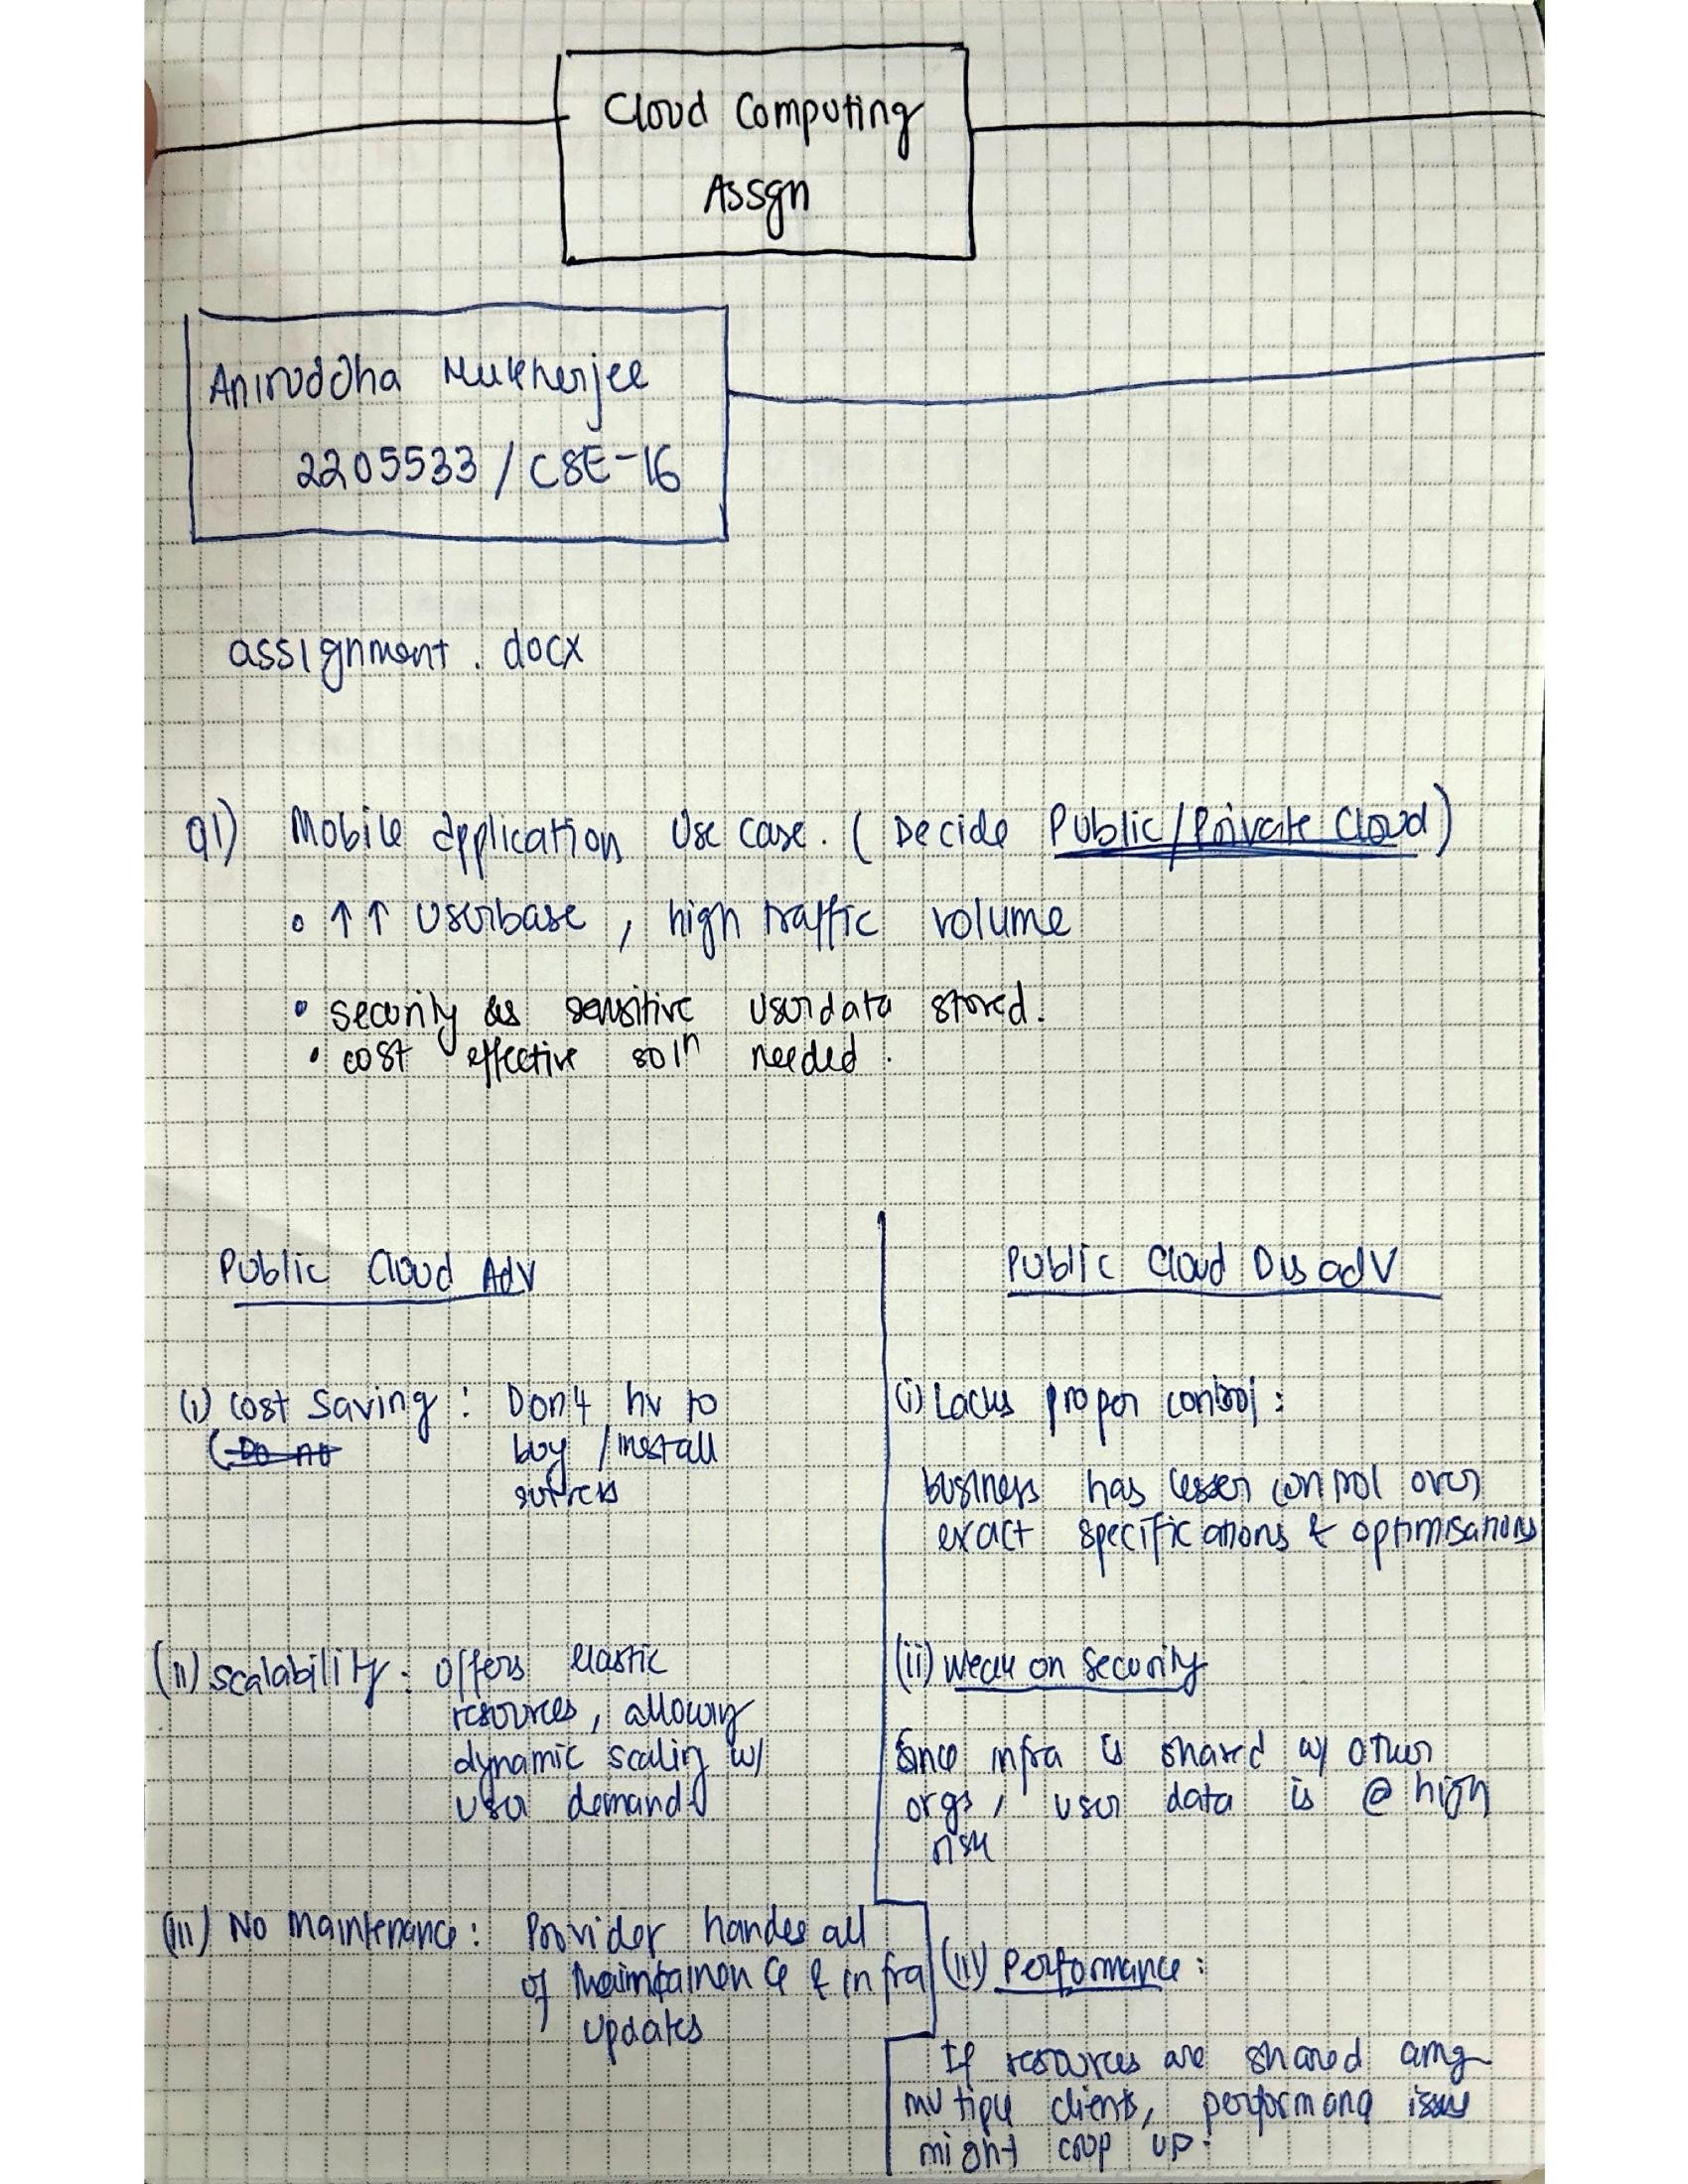 Cloud Computing
Assgn
Aniruddha Mukherjee
2205533 / CSE-16
assignment . docx
Q1) Mobile application Use case. ( Decide Public/Private Cloud)
• ↑↑ Userbase , high traffic volume
• security as sensitive userdata stored.
• cost effective solⁿ needed.
Public Cloud Adv
(i) Cost Saving : Don't hv to
(Do no
buy / install
servers
(ii) Scalability : offers elastic
resources, allowing
dynamic scaling w/
user demand
(iii) No Maintenance : Provider handes all
of Maintainence & infra
updates
Public Cloud Disadv
(i) Lacks proper control :
business has lesser control over
exact specifications & optimisations
(ii) Weak on Security
Since infra is shared w/ other
orgs, user data is @ high
risk
(iii) Performance :
If resources are shared amg
multiple clients, performance issues
might crop up.